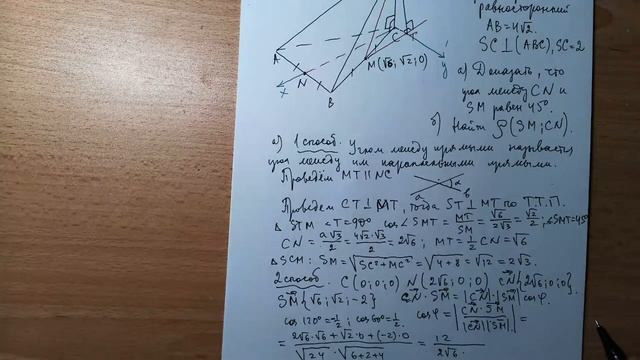 равносторонний
AB=4√2.
SC⊥(ABC), SC=2
а) Доказать, что
угол между CN и
SM равен 45°.
б) Найти ρ(SM; CN).
A
N
x
B
M(√6; √2; 0)
C
y
а) 1 способ. Углом между прямыми называется
угол между им параллельными прямыми.
Проведём MT∥NC
a
b
α
Проведём CT⊥MT, тогда ST⊥MT по Т.Т.П.
Δ STM ∠T=90° cos∠SMT = MT/SM = √6/2√3 = √2/2; ∠SMT=45°
CN = a√3/2 = 4√2·√3/2 = 2√6; MT = 1/2 CN = √6
Δ SCM: SM = √SC²+MC² = √4+8 = √12 = 2√3.
2 способ. C(0;0;0) N(2√6;0;0) CN{2√6;0;0}.
SM{√6;√2;-2} CN·SM = |CN|·|SM| cos φ.
cos 120° = -1/2; cos 60° = 1/2. cos φ = |CN·SM / |CN||SM|| =
= 2√6·√6+√2·0+(-2)·0 / √24·√6+2+4 = 12 / 2√6